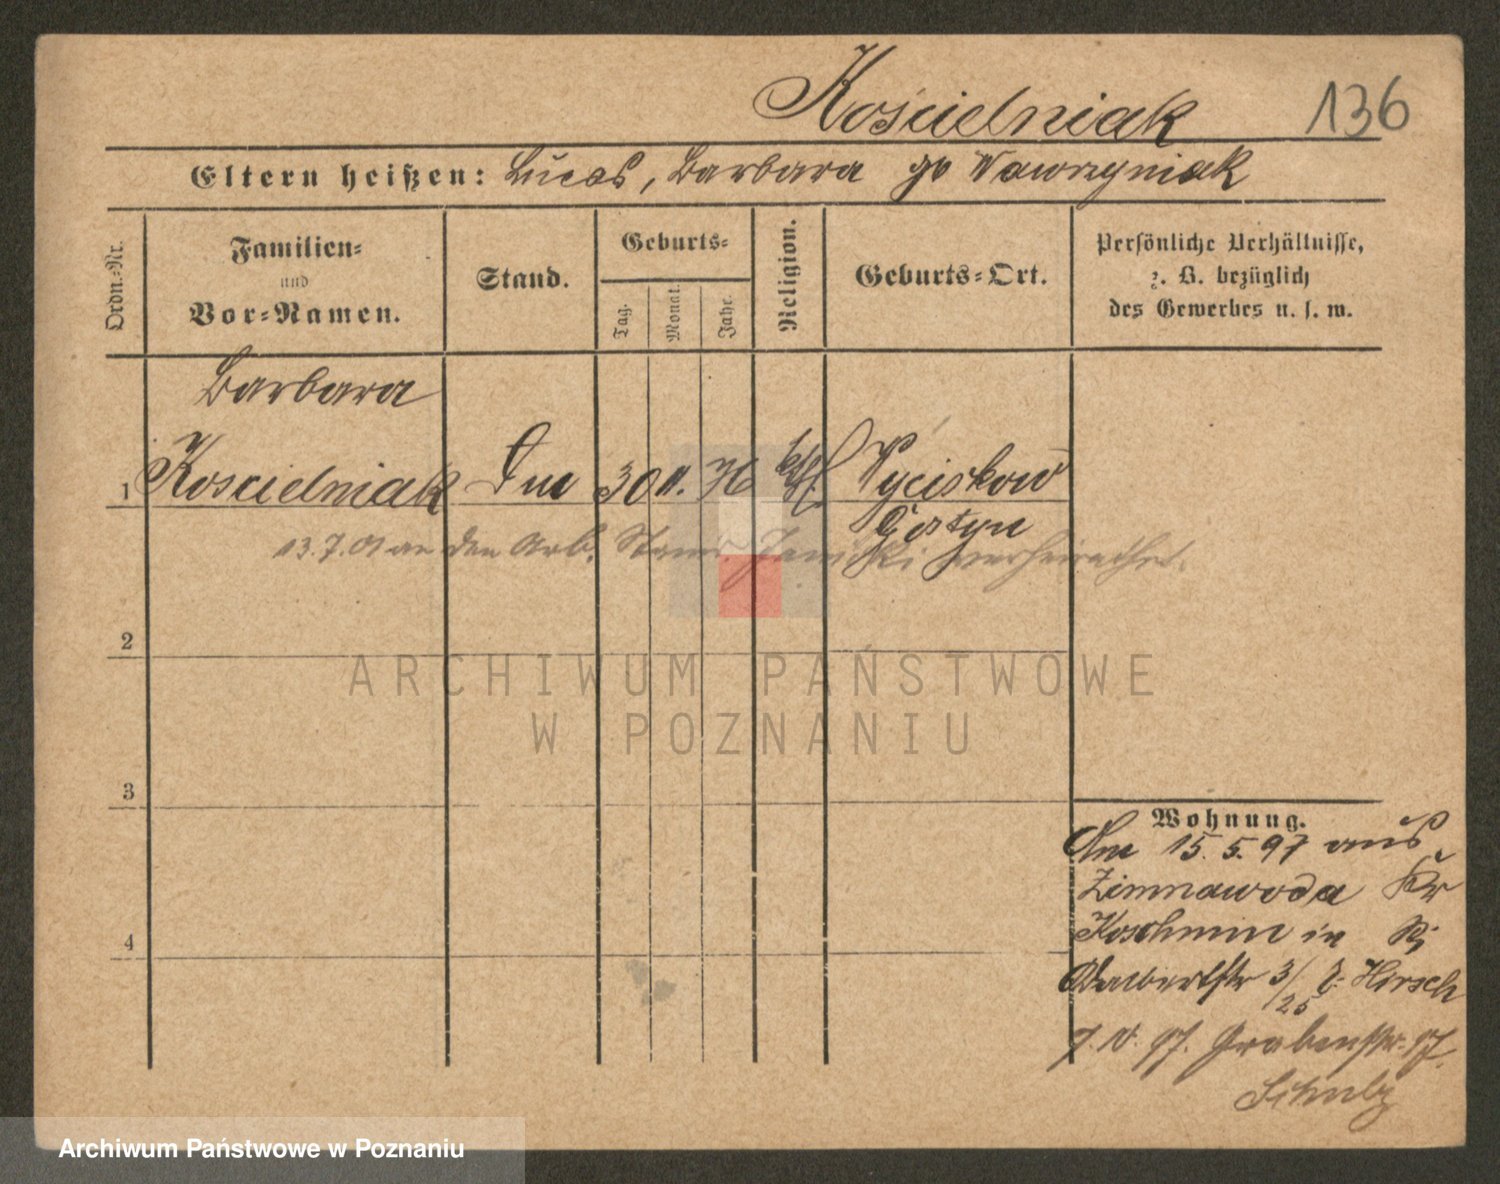 Kościelniak 136
Eltern heißen: Lucas, Barbara gb Wawrzyniak
Ordn.-Nr.
Familien-
und
Vor-Namen.
Stand.
Geburts-
Tag.
Monat.
Jahr.
Religion.
Geburts-Ort.
Persönliche Verhältnisse,
z. B. bezüglich
des Gewerbes u. s. w.
Barbara
1 Koscielniak 30 11. 76 kth. Wyciskow
Gostyn
13.7.01 an den Arb. Janicki verheirathet.
2
ARCHIWUM PAŃSTWOWE
W POZNANIU
3
Wohnung.
Am 15.5.97 aus
Zimnawoda Kr
Koschmin in
3/25 Hirsch
97. Grabenstr.
Schulz
4
Archiwum Państwowe w Poznaniu